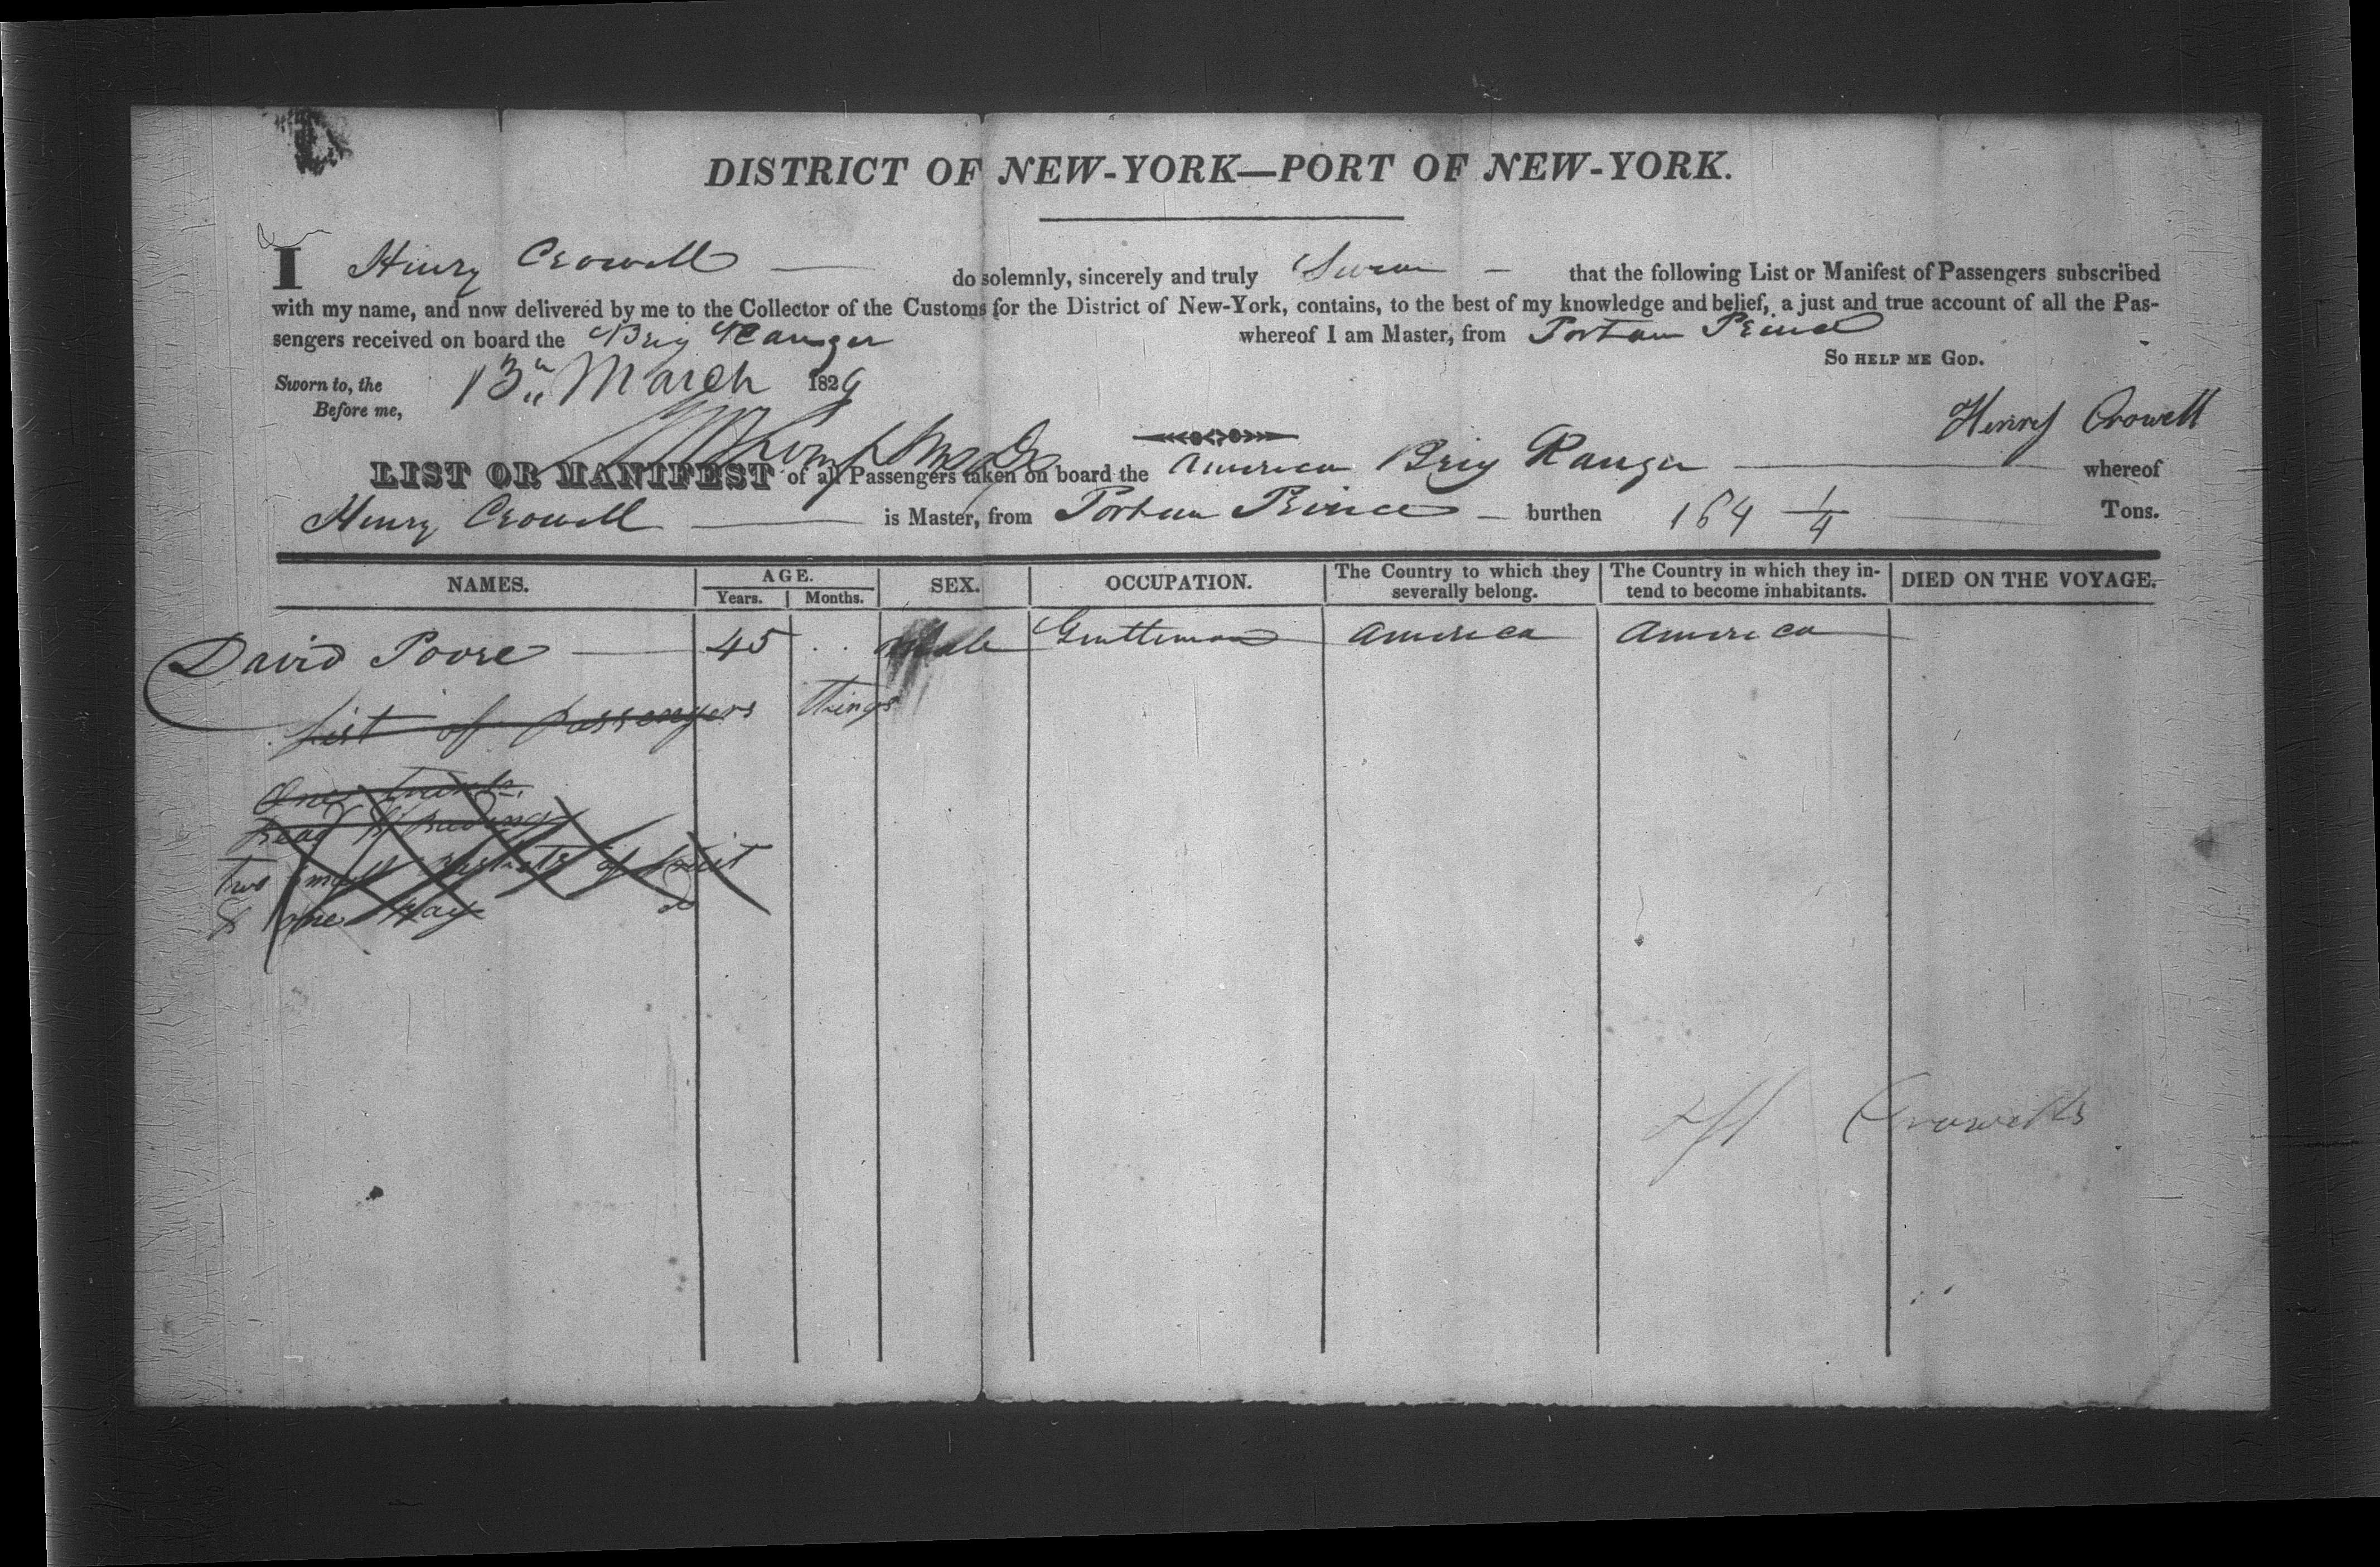 DISTRICT OF NEW-YORK—PORT OF NEW-YORK.
I Henry Crowell do solemnly, sincerely and truly Swear that the following List or Manifest of Passengers subscribed
with my name, and now delivered by me to the Collector of the Customs for the District of New-York, contains, to the best of my knowledge and belief, a just and true account of all the Pas-
sengers received on board the Brig Ranger whereof I am Master, from Portau Prince
SO HELP ME GOD.
Sworn to, the 13th March 1829
Before me,
Henry Crowell
LIST OR MANIFEST of all Passengers taken on board the America Brig Ranger whereof
Henry Crowell is Master, from Portau Prince burthen 164 1/4 Tons.
NAMES. AGE. Years. Months. SEX. OCCUPATION. The Country to which they severally belong. The Country in which they in-tend to become inhabitants. DIED ON THE VOYAGE.
David Poore 45 .. Male Gentleman America America
List of Passengers things
One Trunk
Two small of fruit
& one
Crowells